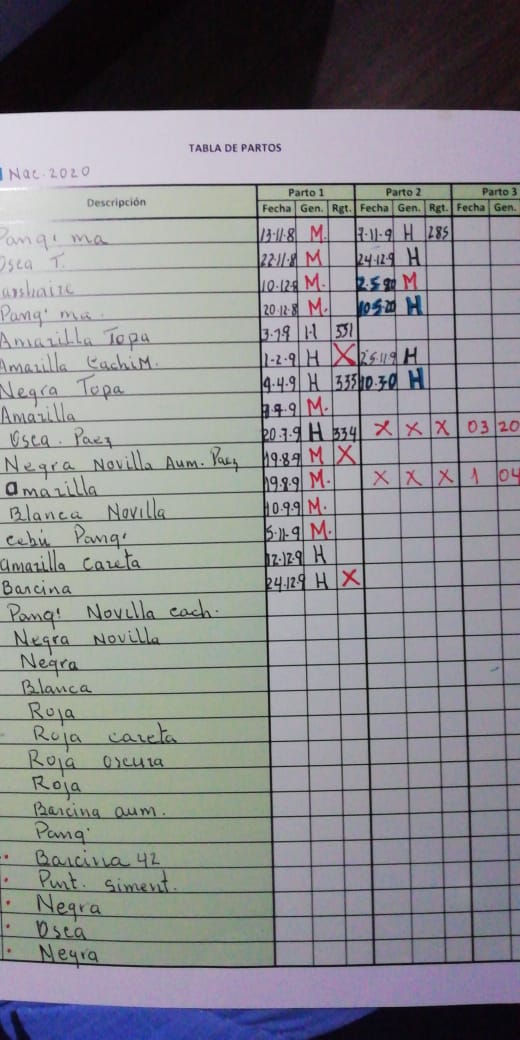 TABLA DE PARTOS
Nac. 2020
Descripción Parto 1 Parto 2 Parto 3
Fecha Gen. Rgt. Fecha Gen. Rgt. Fecha Gen.
Pangi ma 13-11-8 M. 7-11-9 H 285
Osca T. 22-11-8 M 24-12-9 H
10-12-8 M. 2-5-20 M
Pangi ma. 20-12-8 M. 10-5-20 H
Amarilla Topa 3-79 H 331
Amarilla CachiM. 1-2-9 H X 25-11-9 H
Negra Topa 9-4-9 H 335 10-3-0 H
Amarilla 9-9 M.
Osca. Paez 20-7-9 H 334 X X X 03 20
Negra Novilla Aum. Paez 19-8-9 M X
amarilla 19-8-9 M. X X X 1 04
Blanca Novilla 10-9-9 M.
cebú Pangi 5-11-9 M.
amarilla Careta 12-12-9 H
Barcina 24-12-9 H X
Pangi Novilla cach.
Negra Novilla
Negra
Blanca
Roja
Roja careta
Roja oscura
Roja
Barcina aum.
Pangi
Barcina 42
Punt. siment.
Negra
Osca
Negra